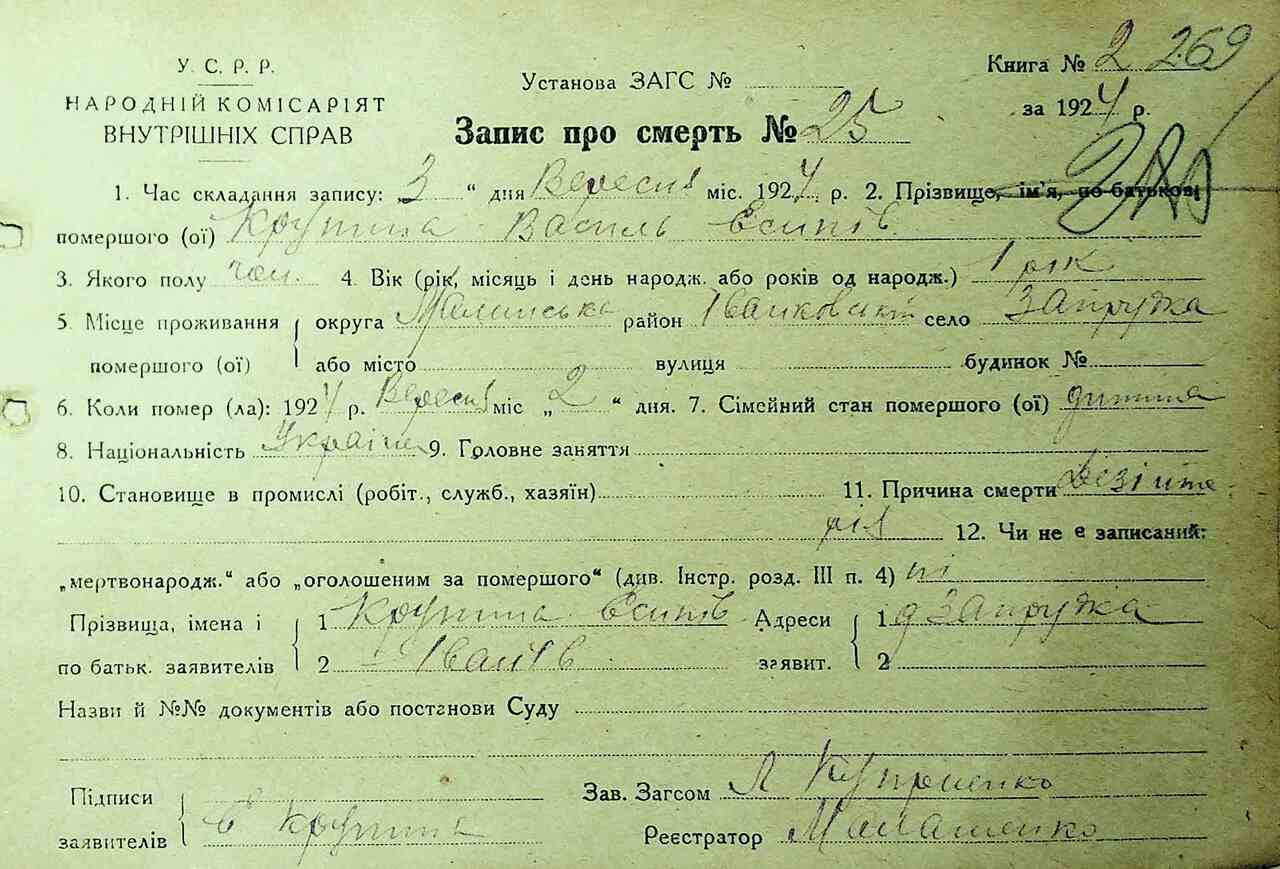 У. С. Р. Р.
НАРОДНІЙ КОМІСАРІЯТ
ВНУТРІШНІХ СПРАВ
Установа ЗАГС №
Книга № 2 269
за 1924 р.
Запис про смерть № 25
1. Час складання запису: „3“ дня Вересня міс. 1924 р. 2. Прізвище, ім'я, по батькові
помершого (ої) Крупина Василь Єсипів
3. Якого полу чол. 4. Вік (рік, місяць і день народж. або років од народж.) 1 рік
5. Місце проживання округа Малинська район Іванковський село Запрудка
помершого (ої) або місто вулиця будинок №
6. Коли помер (ла): 1924 р. Вересня міс „2“ дня. 7. Сімейний стан помершого (ої) дитина
8. Національність Україне 9. Головне заняття
10. Становище в промислі (робіт., служб., хазяїн) 11. Причина смерти Дезінте
рія 12. Чи не є записаний:
„мертвонародж.“ або „оголошеним за помершого“ (див. Інстр. розд. III п. 4) ні
Прізвища, імена і 1 Крупина Єсипів Адреси 1 д Запрудка
по батьк. заявителів 2 Іванів заявит. 2
Назви й №№ документів або постанови Суду
Підписи Зав. Загсом Л
заявителів Є Крупина Реєстратор Малашенко